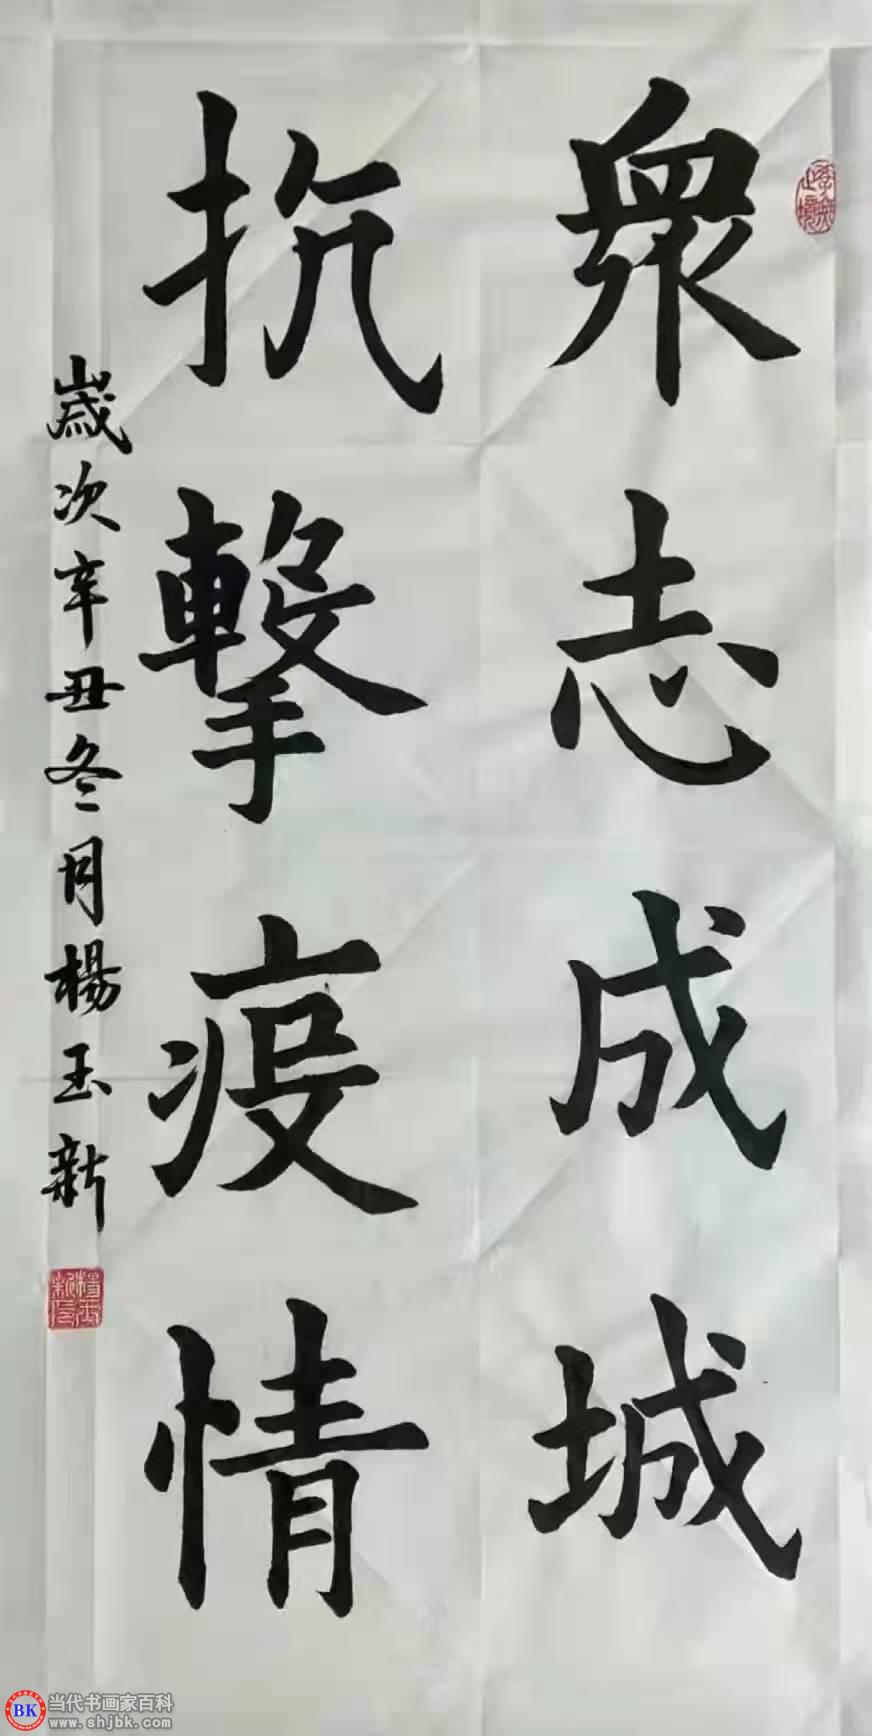 眾志成城
抗擊疫情
歲次辛丑冬月楊玉新
學無止境
楊玉新印
BK 当代书画家百科
www.shjbk.com